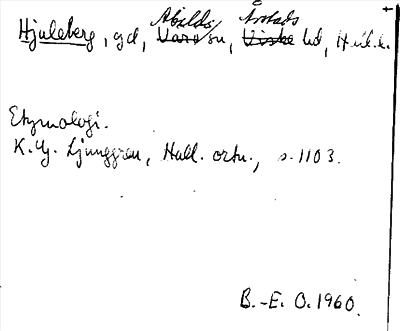 Abilds Årstads
Hjuleberg, gd, Vare sn, Viske hd, Hall.l.
Etymologi.
K. G. Ljunggren, Hall. ortn., s. 1103.
B.-E. O. 1960.